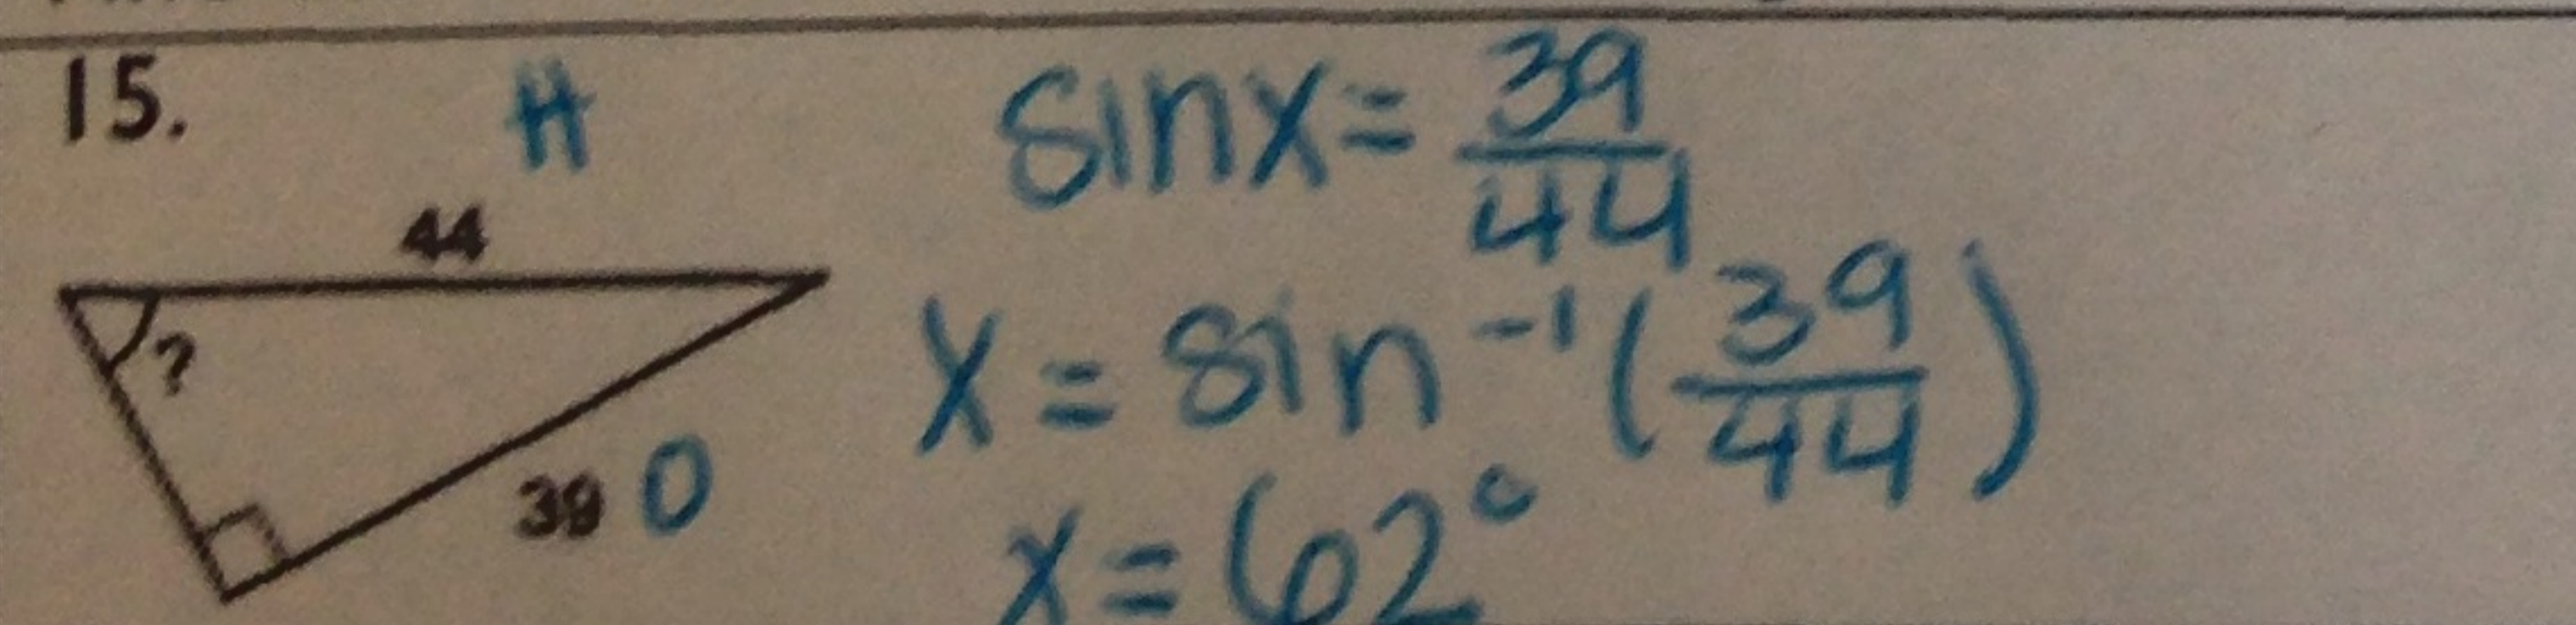 15.
H
44
?
39 O
sin x = 39/44
x = sin⁻¹ (39/44)
x = 62°